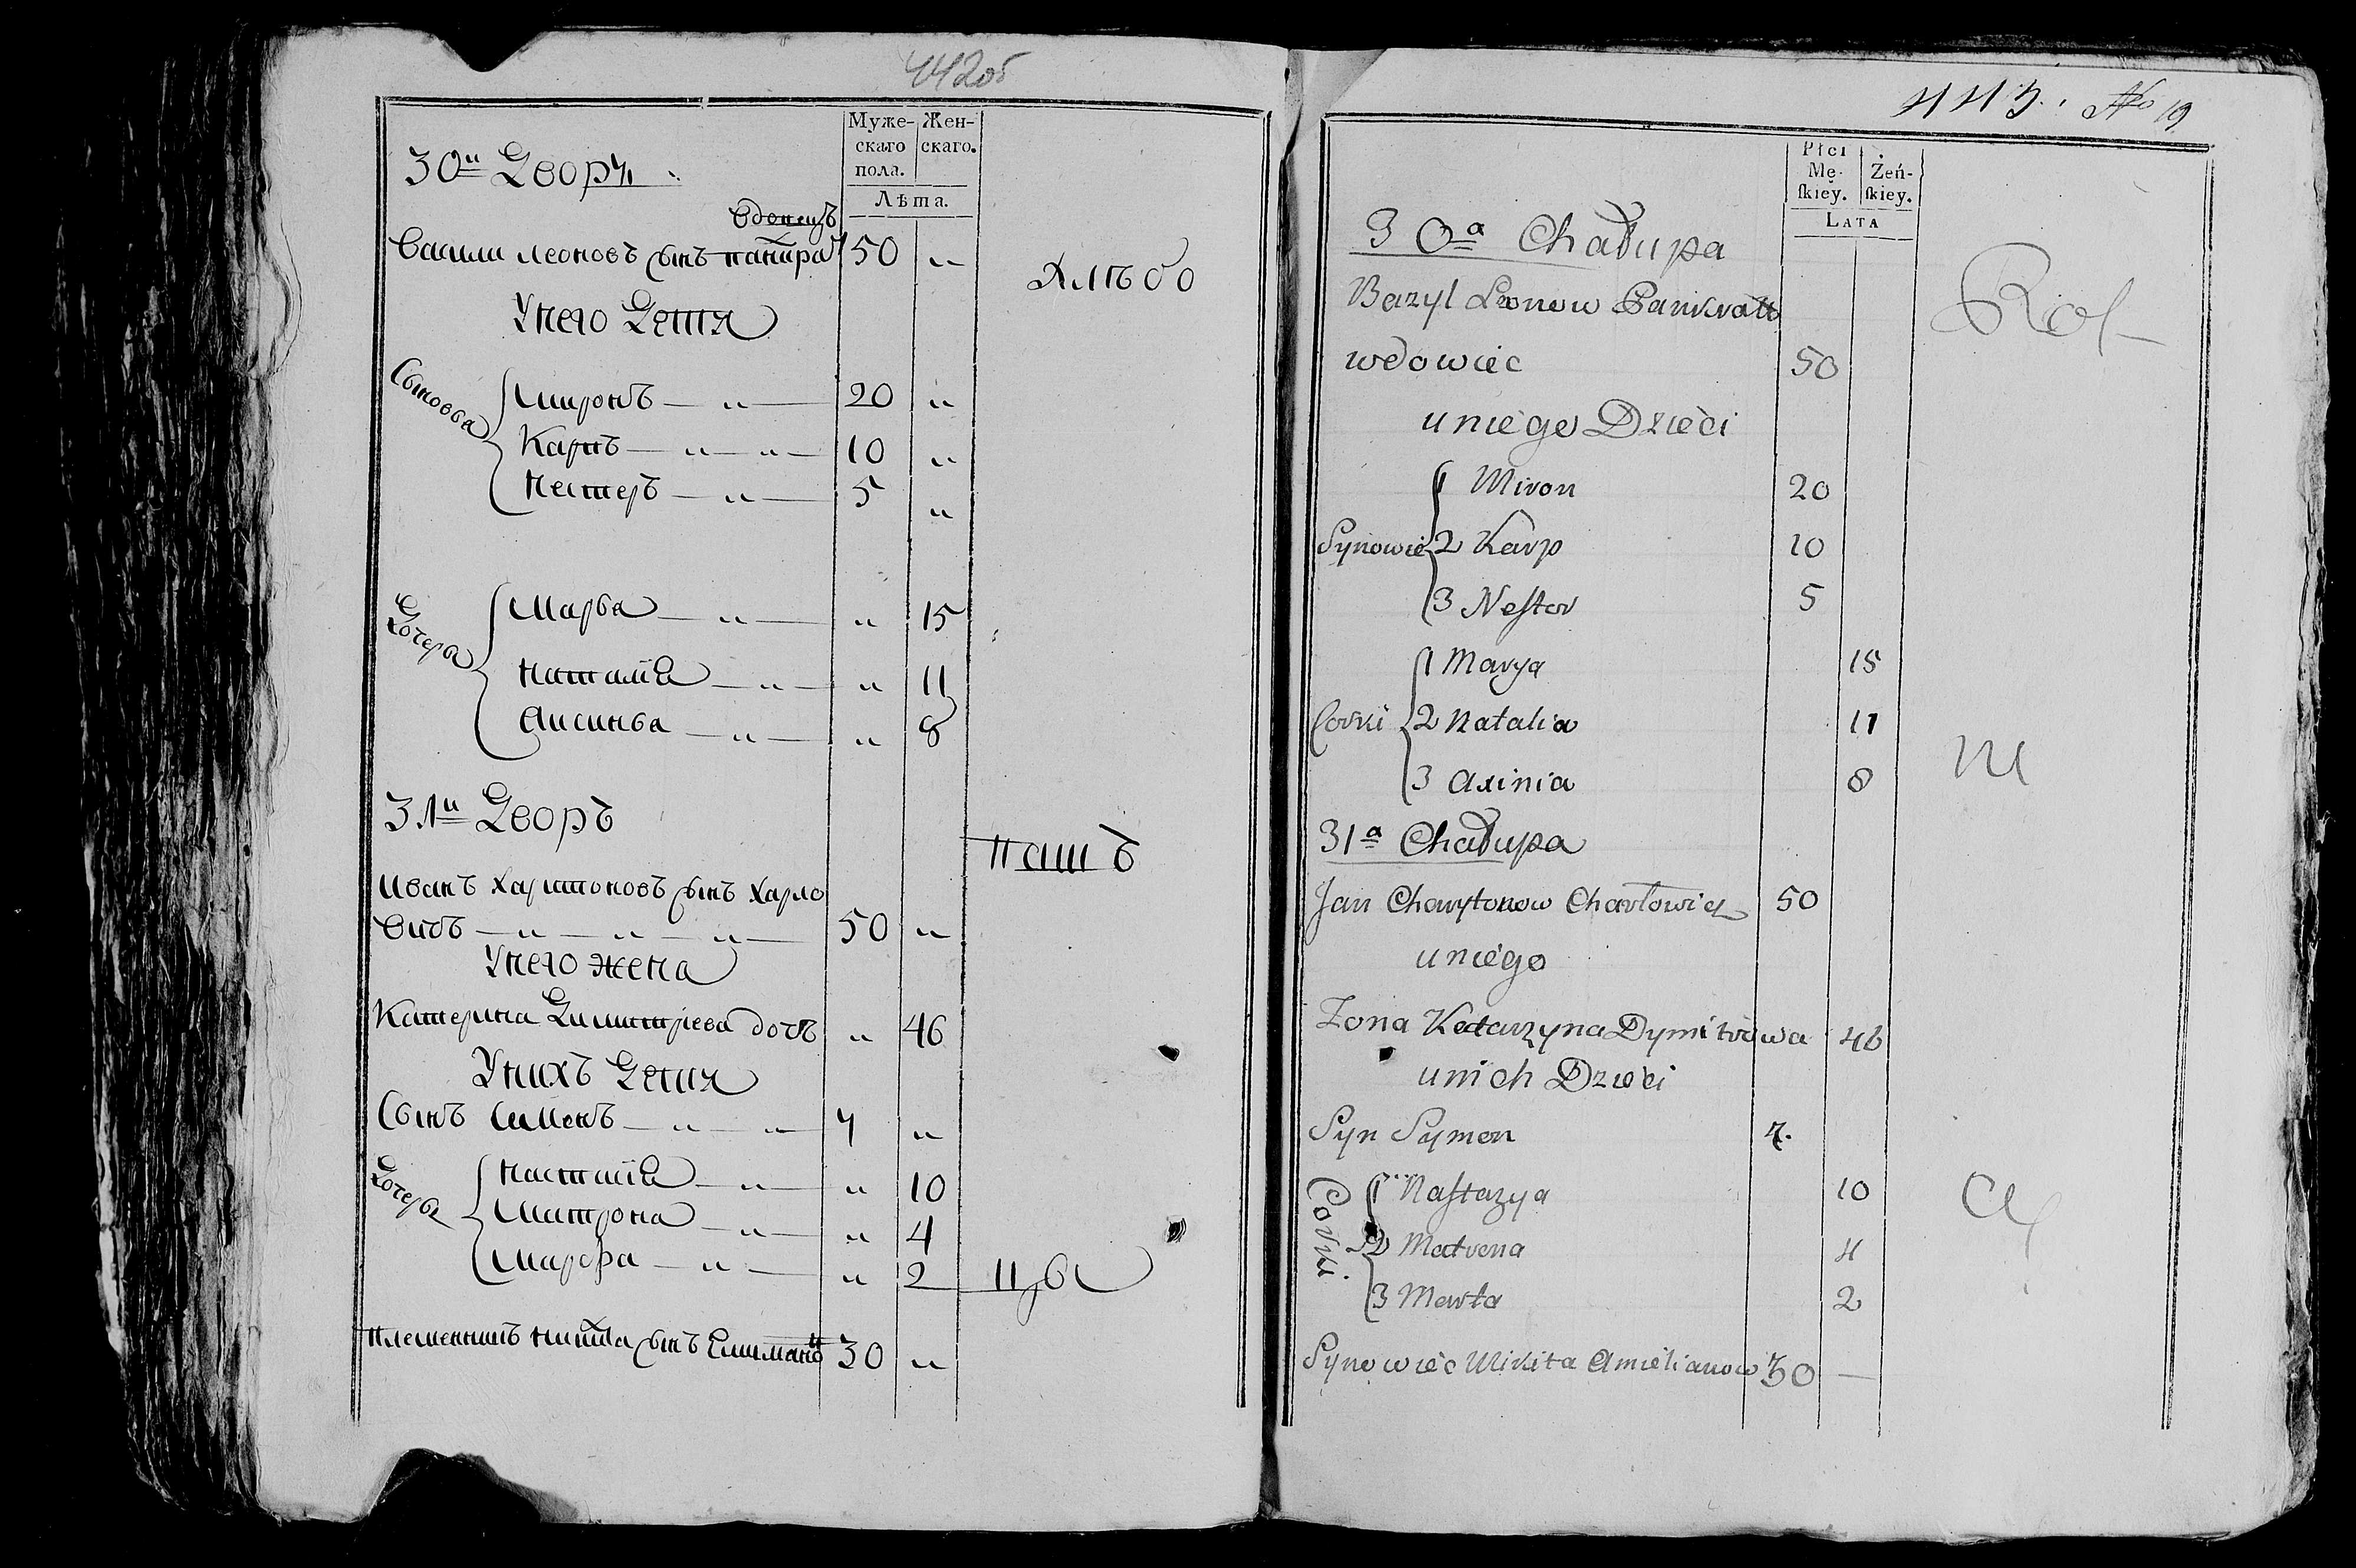 442об
Муже- Жен-
скаго скаго.
пола.
Лѣта.
30й Дворъ
вдовецъ
Васили Леоновъ сынъ панкра 50 "
У него Дети
Хлѣбо
Сыновья
Миронъ — " — 20 "
Карпъ — " — " — 10 "
Нестеръ — " — 5 "
Дочеръи
Марья — " — " 15
Наталія — " — " 11
Аксинья — " — " 8
31й Дворъ
пашъ
Иванъ Харитоновъ сынъ Харло
вичъ — " — " — " — 50 "
У него жена
Катерина Димитріева дочъ " 46
У нихъ Дети
Сынъ Семенъ — " — " 7 "
Дочеръи
Настасія — " — " 10
Матрона — " — " 4
Марфа — " — " 2
цы
племенникъ Никита сынъ 30 "
443. No 19
Płci
Mę- Żeń-
ſkiey. ſkiey.
LATA
30a Chałupa
Bazyl Leonow Pankratt
wdowiec 50
u niego Dzieci
Rol-
Synowie
1 Miron 20
2 Karp 10
3 Neſtor 5
Corki
1 Marya 15
2 Natalia 11
3 Axinia 8
ni
31a Chałupa
Jan Charytonow Charłowicz 50
u niego
Zona Katarzyna Dymitrowa 46
u nich Dzieci
Syn Symon 7.
Corki.
1 Naſtazya 10
2 Matrona 4
3 Marta 2
cy
Synowiec Mikita Amielianow 30 —